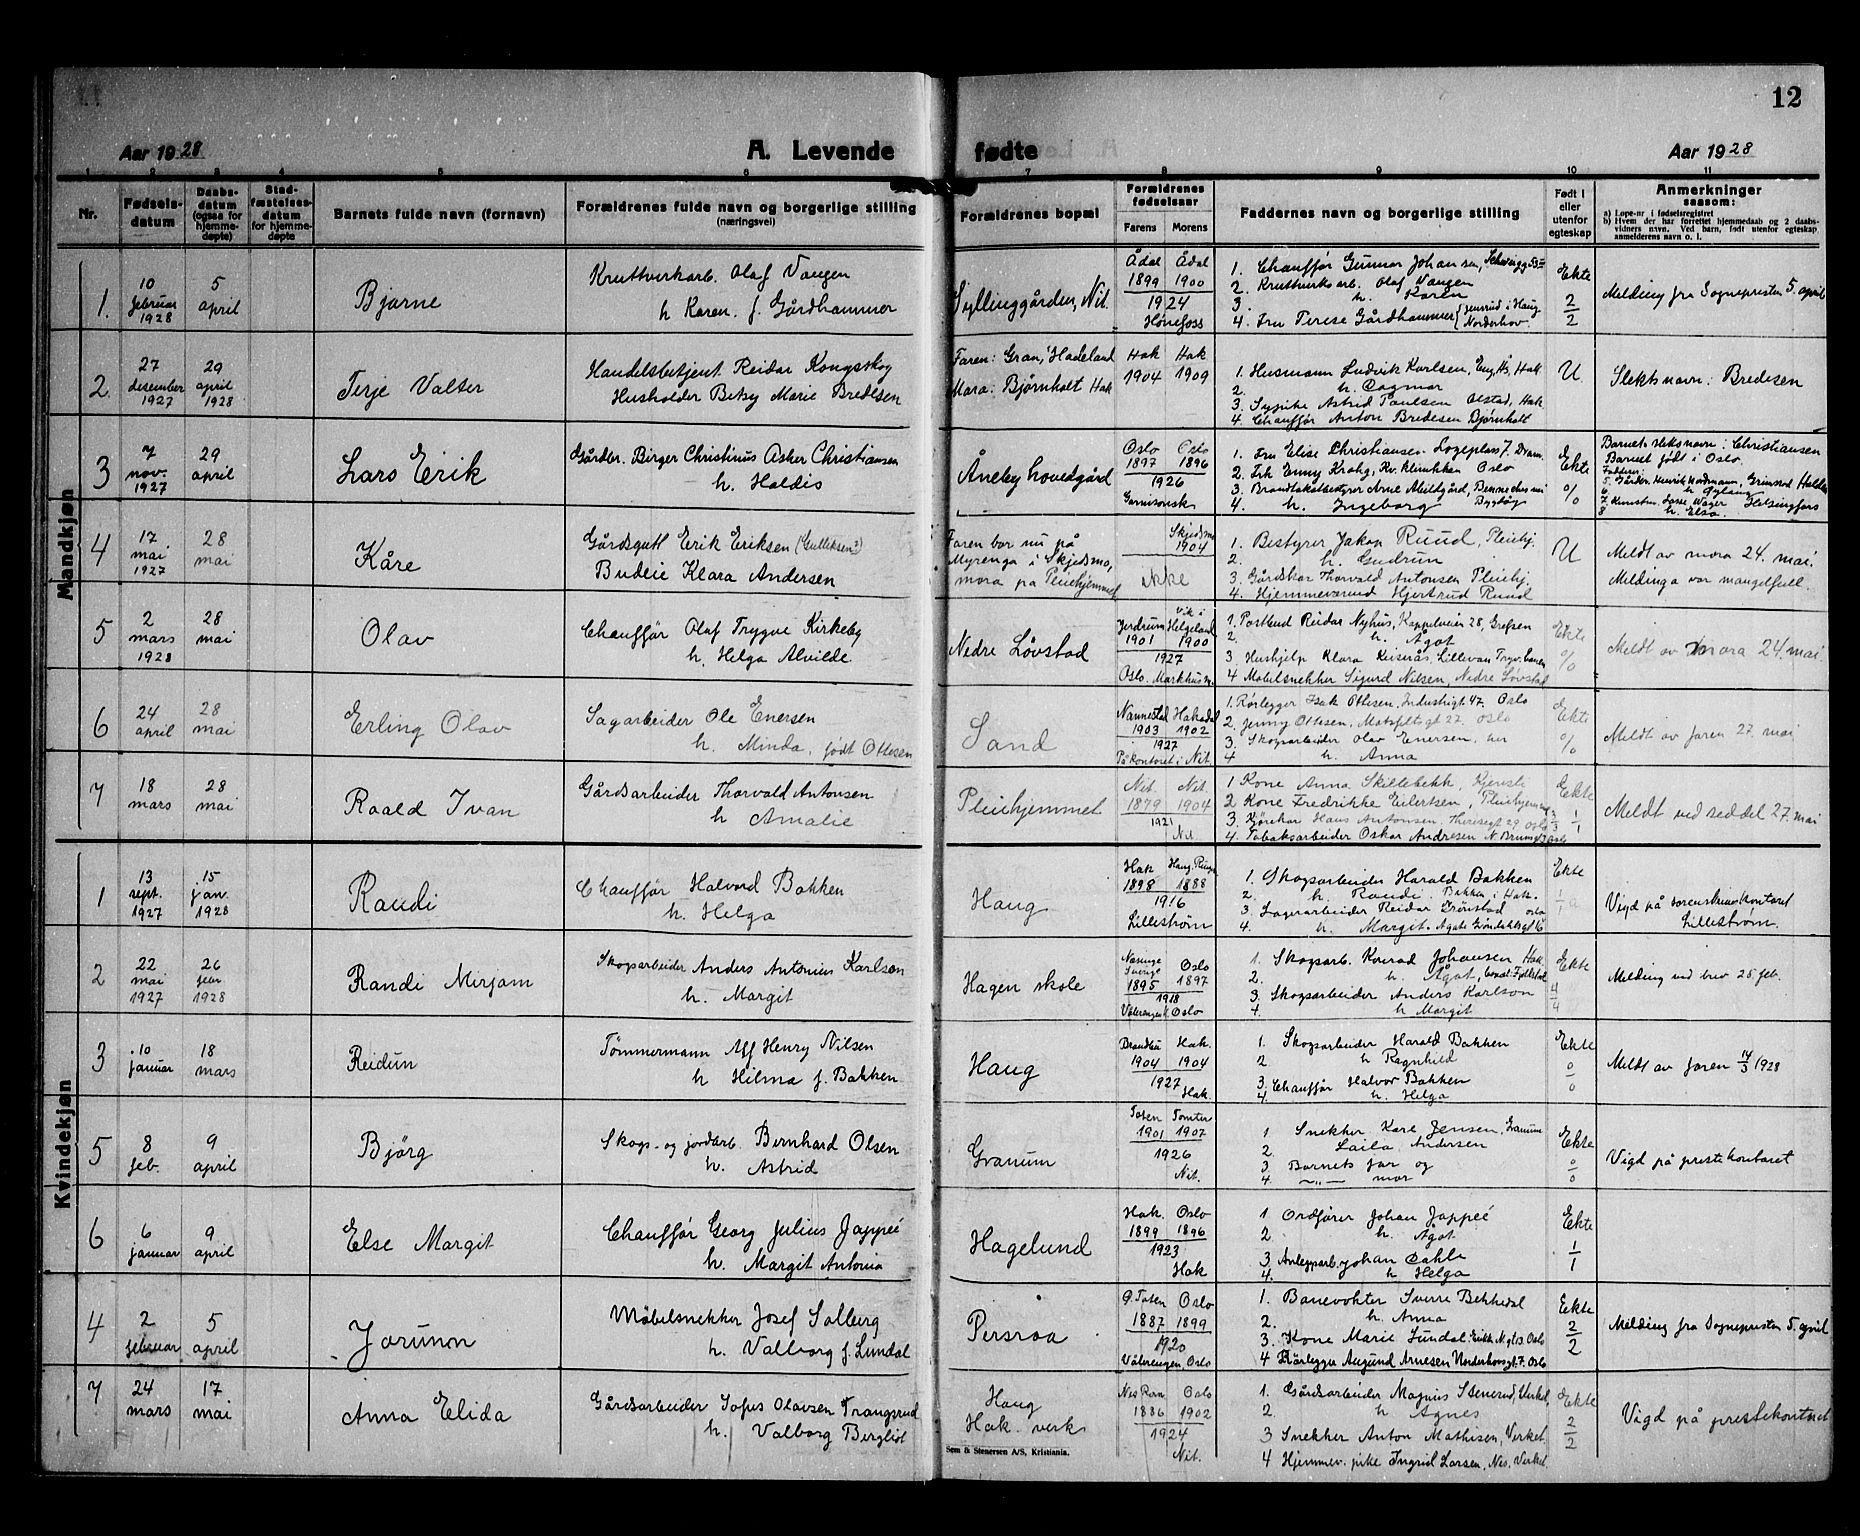 12
Aar 1928
A. Levende fødte
Aar 1928
1 2 3 4 5 6 7 8 9 10 11
Nr.
Fødselsdatum
Daabsdatum (ogsaa for hjemmedøpte)
Stadfæstelsesdatum for hjemmedøpte
Barnets fulde navn (fornavn)
Forældrenes fulde navn og borgerlige stilling (næringsvei)
Forældrenes bopæl
Forældrenes fødselsaar
Farens Morens
Faddernes navn og borgerlige stilling
Født i eller utenfor egteskap
Anmerkninger saasom:
a) Løpe-nr i fødselsregistret
b) Hvem der har forrettet hjemmedaab og 2 daabsvidners navn. Ved barn, født utenfor egteskap, anmelderens navn o. l.
Mandkjøn
1. 10 februar 1928
5 april
Bjarne
Kruttverkarb. Olaf Vangen
h. Karen f. Gårdhammer
Syllinggården, Nit.
Ådal Ådal
1899 1900
1924
Hønefoss
1. Chauffør Gunnar Johansen,
2. Kruttverksarb. Olaf Vangen
3. h. Karen
4. Fru Terese Gårdhammer
Norderhov
Ekte
2/2
Melding fra Sognepresten 5. april
2 27 desember 1927
29 april 1928
Terje Valter
Handelsbetjent Reidar Kongsskog
Husholder Betsy Marie Bredesen
Faren: Gran, Hadeland
Mora: Bjørnholt Hak
Hak Hak
1904 1909
1. Husmann Ludvik Karlsen, Hak
2. h. Dagmar
3. Sypike Astrid Paulsen Ølstad, Hak
4. Chauffør Anton Bredesen Bjørnholt
U
Slektsnavn: Bredesen
3 7 nov. 1927
29 april
Lars Erik
Gårdbr. Birger Christinus Asker Christiansen
h. Haldis
Åneby hovedgård
Oslo Oslo
1897 1896
1926
Garnisonsk
1. Fru Elise Christiansen. Logeplass 7. Dram.
2. Frk Enny Krohg, Kv. klinikken Oslo
3. Brandtakstbestyrer Arne Meldgård, Bygdøy
4. h. Ingeborg
Ekte
0/0
Barnets slektsnavn: Christiansen
Barnet født i Oslo.
Faddere:
5. Gårdbr. Henrik Nordmann, Grimsrød Halden
6 h.
7 Kunstm. Lasse Wager Helsingfors
8 h. Elsa
4 17 mai 1927
28 mai
Kåre
Gårdsgutt Erik Eriksen (Gulliksen?)
Budeie Klara Andersen
Faren bor nu på
Myrenga i Skjedsmo,
mora på Pleiehjemmet
Skjedsmo
1904
ikke
1. Bestyrer Jakop Ruud, Pleiehj.
2. h. Gudrun
3. Gårdskar Thorvald Antonsen Pleiehj.
4. Hjemmeværend Hjertrud Ruud
U
Meldt av mora 24. mai.
Meldinga var mangelfull.
5 2 mars 1928
28 mai
Olav
Chauffør Olaf Trygve Kirkeby
h. Helga Alvilde
Nedre Løvstad
Jerdrum Vik i Helgeland
1901 1900
1927
Oslo. Markhus m.
1. Postbud Reidar Nyhus, Kappelveien 28, Grefsen
2. h. Ågot
3 Hushjelp Klara Lillevan
4 Møbelsnekker Sigurd Nilsen, Nedre Løvstad
Ekte
0/0
Meldt av mora 24. mai.
6 24 april
28 mai
Erling Olav
Sagarbeider Ole Enersen
h. Minda, født Ottesen
Sand
Nannestad Hakadal
1903 1902
1927
På kontoret i Nit.
1. Rørlegger Isak Ottesen, Industrigt 47, Oslo
2. Jenny Ottesen, 27. Oslo
3. Skogsarbeider Olav Enersen, her
4 h. Anna
Ekte
0/0
Meldt av faren 27. mai
7 18 mars
28 mai
Roald Ivan
Gårdsarbeider Thorvald Antonsen
h Amalie
Pleiehjemmet
Nit. Nit.
1879 1904
1921
Nit
1 Kone Anna Skillebekk, Kjensli
2 Kone Fredrikke Eilertsen, Pleiehjemmet
3. Kjørekar Hans Antonsen, Theresegt 29, Oslo
4. Tobaksarbeider Oskar Andresen
Ekte
1/1
Meldt ved seddel 27. mai
Kvindekjøn
1 13 sept. 1927
15 jan. 1928
Randi
Chauffør Halvord Bakken
h. Helga
Haug
Hak Haug, Ring.
1898 1888
1916
Lillestrøm
1. Skogsarbeider Harald Bakken
2. h. Randi. Bakken i Hak.
3. Lagerarbeider Reidar Grønstad Oslo
4. h. Margit. Agate Grøndahlsgt 16
Ekte
Vigd på sorenskriverkontoret
Lillestrøm.
2 22 mai 1927
26 febr 1928
Randi Mirjam
Skogsarbeider Anders Antonius Karlson
h. Margit
Hagen skole
Sverige Oslo
1895 1897
1918
Vålerengen k. Oslo
1. Skogsarb. Konrad Johansen Hak.
2. h Ågot,
3. Skogsarbeider Anders Karlson
4. h Margit
Ekte
4/4
Melding ved brev 25. feb.
3 10 januar
18 mars
Reidun
Tømmermann Alf Henry Nilsen
h Hilma f. Bakken
Haug
Brandbu Hak.
1904 1904
1927
Hak.
1. Skogsarbeider Harald Bakken
2 h Ragnhild
3. Chauffør Halvor Bakken
4. h. Helga
Ekte
0/0
Meldt av faren 14/3 1928
5 8 feb.
9 april
Bjørg
Skogs- og jordarb. Bernhard Olsen
h. Astrid
Granum
Toten Tomter
1901 1907
1926
Nit.
1 Snekker Kare Jensen, Granum
2. Laila Andersen
3 Barnets far og
4. —„— mor
Ekte
0/0
Vigd på prestekontoret
6 6 januar
9 april
Else Margit
Chauffør Georg Julius Jappeé
h. Margit Antonia
Hagelund
Hak. Oslo
1899 1896
1923
Hak
1 Ordfører Johan Jappeé
2. h. Ågot
3 Anleggarb. Johan Dahle
4. h Helga
Ekte
1/1
4 2 februar
5 april
Jorunn
Møbelsnekker Josef Solberg
h. Valborg f. Lundal
Persroa
Ø. Toten Oslo
1887 1899
1920
Vålerengen, Oslo
1. Banevokter Sverre Bekkedal
2. h. Anna
3. Kone Marie Lundal Oslo
4 Rørlegger Augund Arnesen Norderhovsgt. 7. Oslo
Ekte
2/2
Melding fra Sognepresten 5. april
7 24 mars
17 mai
Anna Elida
Gårdsarbeider Sofus Olavsen Trangsrud
h. Valborg Bergliot
Haug
Hak. verk
Nes Rom. Oslo
1886 1902
1924
Nit.
1. Gårdsarbeider Magnus Stenerud, Verket,
2. h Agnes
3 Snekker Anton Mathisen, Verket.
4 Hjemmev. pike Ingrid Larsen, Nes, Verket.
Ekte
2/2
Vigd på prestekontoret
Sem & Stenersen A/S, Kristiania.